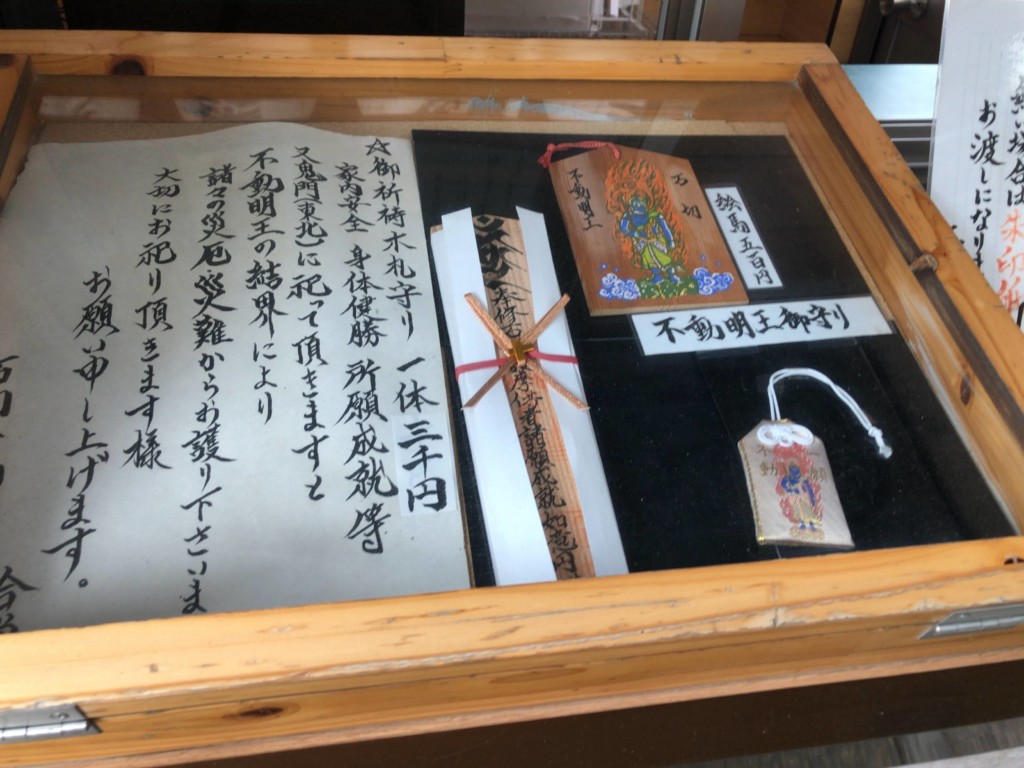 お渡しになりま
万
不動明王
絵馬五百円
不動明王御守り
不動
御祈祷木札守り 一体三千円
家内安全 身体健勝 所願成就 等
又鬼門(東北)に祀って頂きますと
不動明王の結界により
諸々の災厄災難からお護り下さいま
大切にお祀り頂きます様
お願い申し上げます。